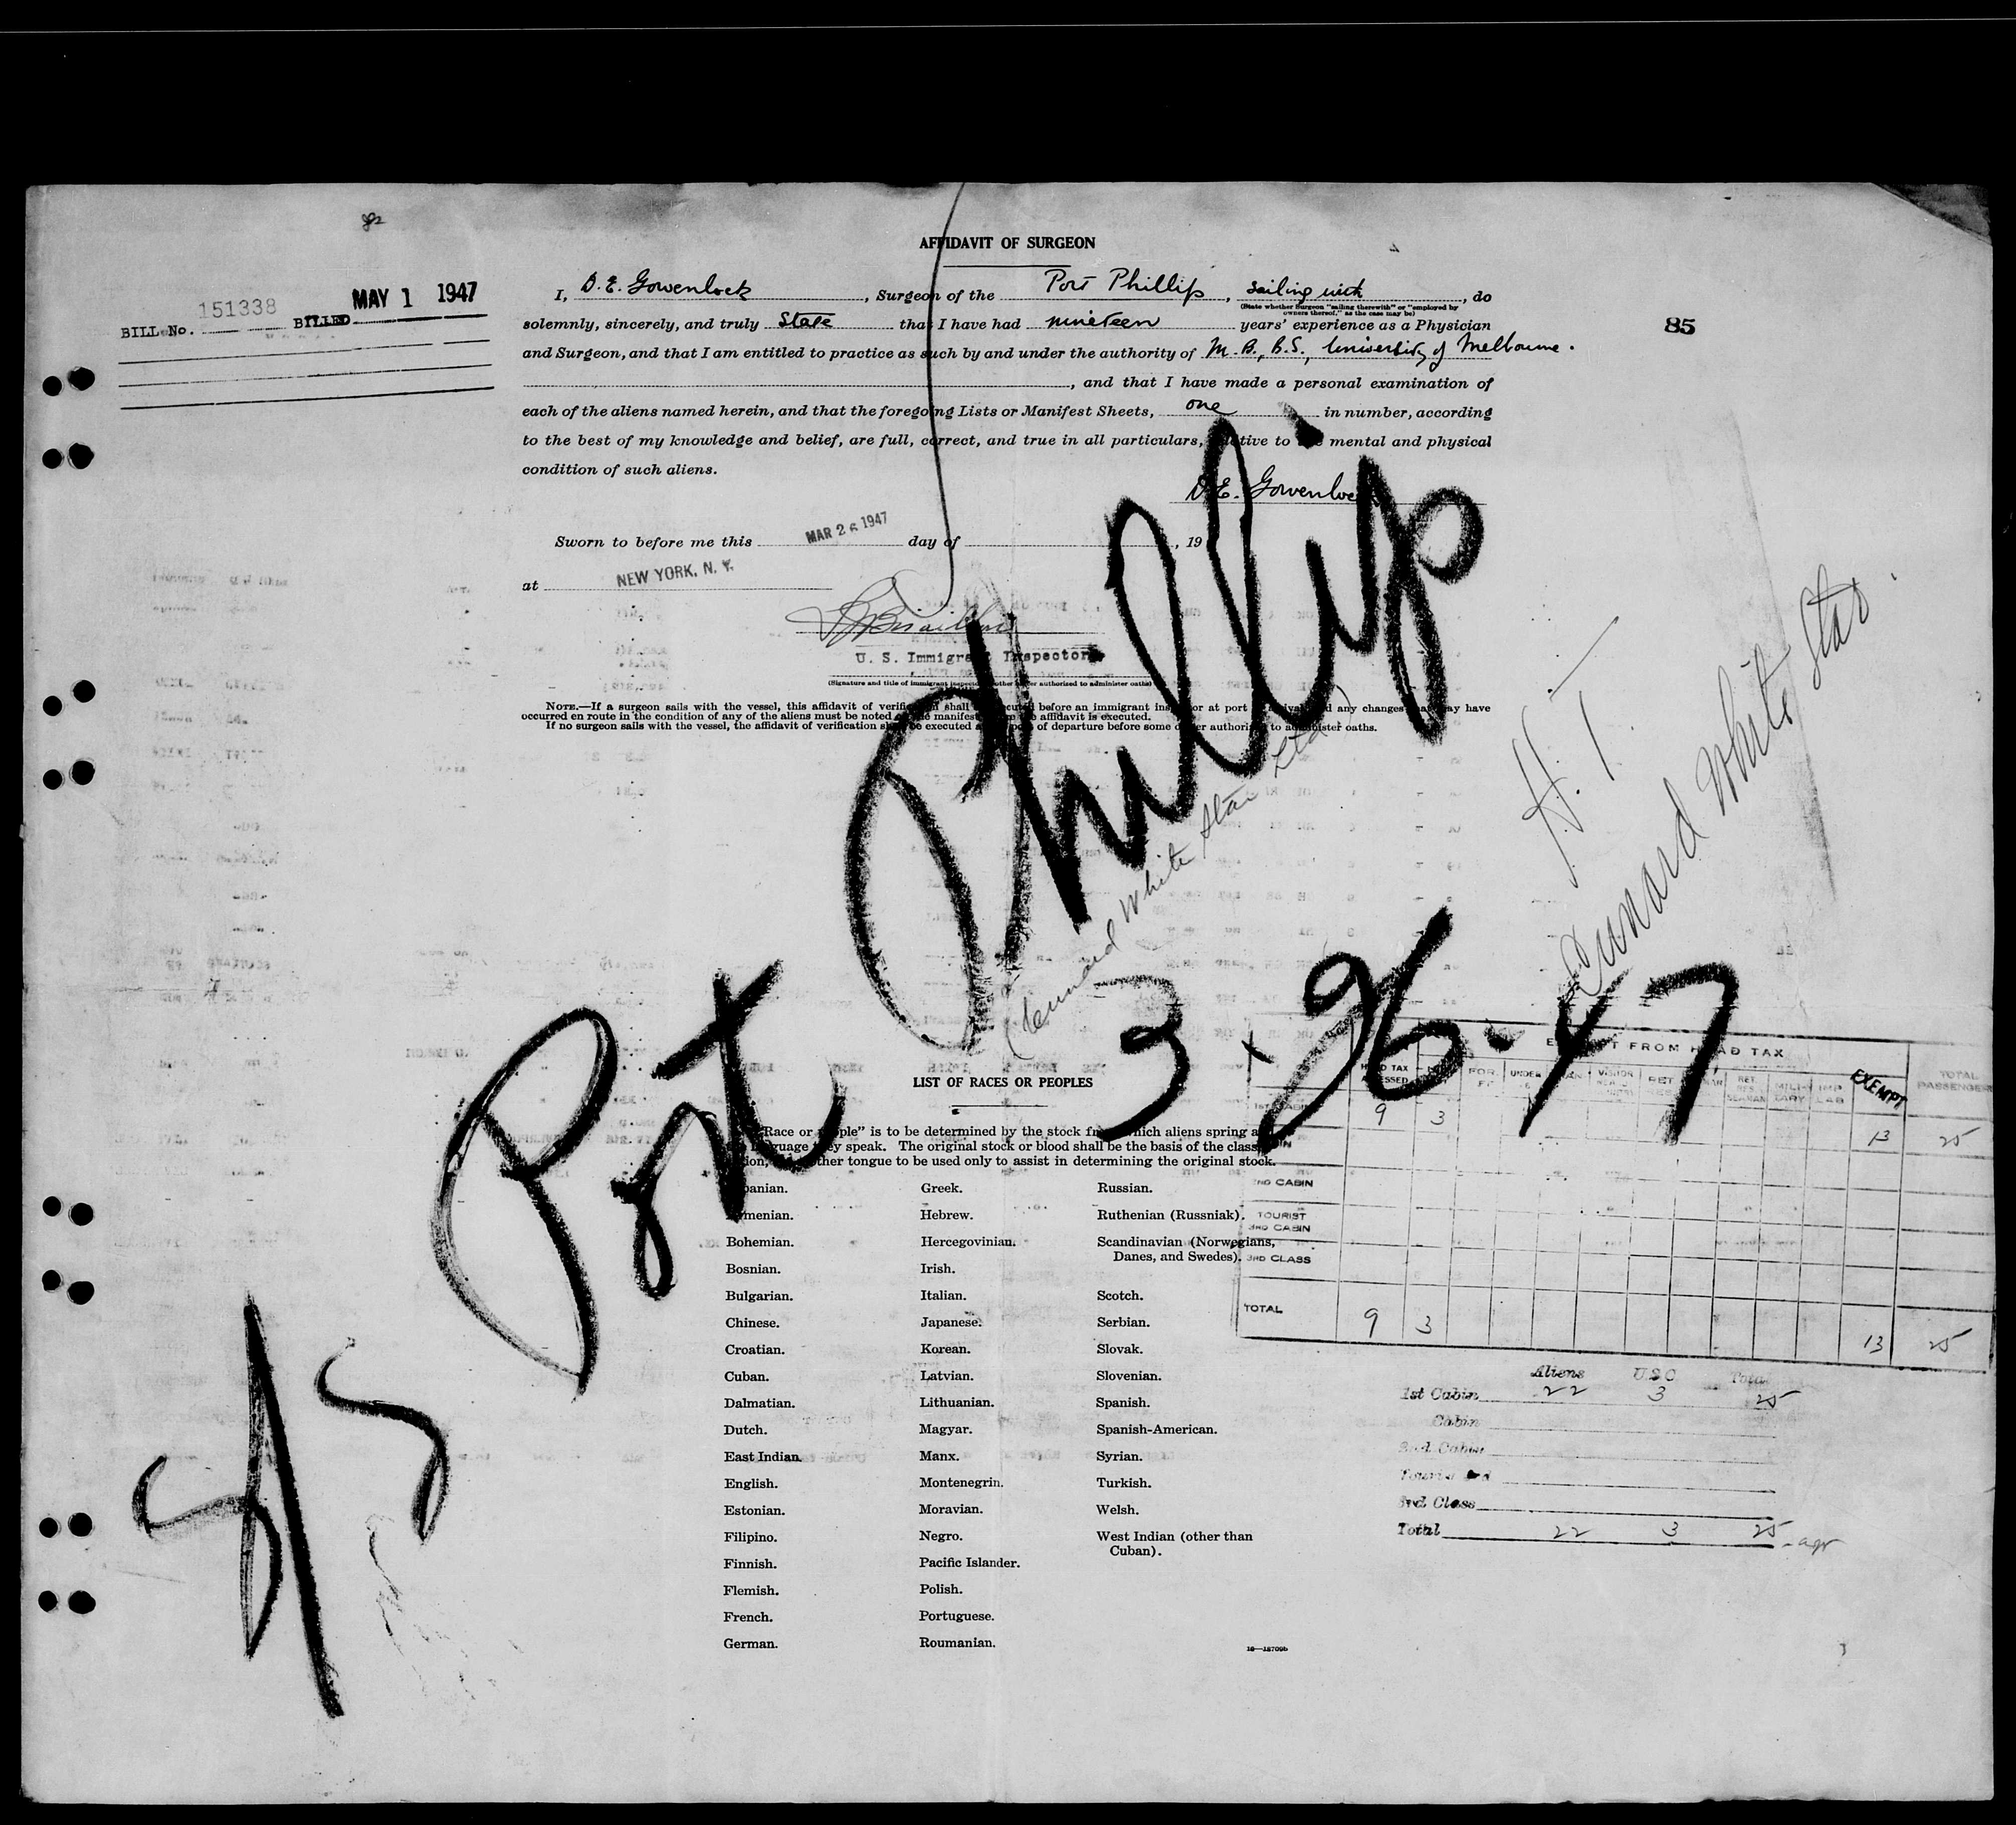 AFFIDAVIT OF SURGEON
BILL No. 151338 BILLED MAY 1 1947
85
I, D.E. Gowenlock, Surgeon of the Port Phillip, sailing with, do
(State whether Surgeon "sailing therewith" or "employed by
owners thereof," as the case may be)
solemnly, sincerely, and truly State that I have had nineteen years' experience as a Physician
and Surgeon, and that I am entitled to practice as such by and under the authority of M.B., B.S., University of Melbourne.
, and that I have made a personal examination of
each of the aliens named herein, and that the foregoing Lists or Manifest Sheets, one in number, according
to the best of my knowledge and belief, are full, correct, and true in all particulars, to mental and physical
condition of such aliens.
D.E. Gowenlock
Sworn to before me this MAR 26 1947 day of , 19
at NEW YORK, N. Y.
U. S. Immigrant Inspector
(Signature and title of immigrant inspector or other officer authorized to administer oaths)
NOTE.—If a surgeon sails with the vessel, this affidavit of verification shall be executed before an immigrant inspector at port of arrival and any changes that may have
occurred en route in the condition of any of the aliens must be noted on the manifest before the affidavit is executed.
If no surgeon sails with the vessel, the affidavit of verification shall be executed at the port of departure before some officer authorized to administer oaths.
S/S Port Phillip
3-26-47
(Cunard White Star Ltd)
H.T.
Cunard White Star
LIST OF RACES OR PEOPLES
"Race or people" is to be determined by the stock from which aliens spring
language they speak. The original stock or blood shall be the basis of the
mother tongue to be used only to assist in determining the original stock.
Albanian. Greek. Russian.
Armenian. Hebrew. Ruthenian (Russniak).
Bohemian. Hercegovinian. Scandinavian (Norwegians,
Danes, and Swedes).
Bosnian. Irish.
Bulgarian. Italian. Scotch.
Chinese. Japanese. Serbian.
Croatian. Korean. Slovak.
Cuban. Latvian. Slovenian.
Dalmatian. Lithuanian. Spanish.
Dutch. Magyar. Spanish-American.
East Indian. Manx. Syrian.
English. Montenegrin. Turkish.
Estonian. Moravian. Welsh.
Filipino. Negro. West Indian (other than
Cuban).
Finnish. Pacific Islander.
Flemish. Polish.
French. Portuguese.
German. Roumanian.
16—18709b
EXEMPT FROM HEAD TAX
HEAD TAX UNDER RET EXEMPT TOTAL PASSENGERS
1ST CABIN 9 3 13 25
2ND CABIN
TOURIST
3RD CABIN
3RD CLASS
TOTAL 9 3 13 25
Aliens USC Total
1st Cabin 22 3 25
Cabin
2nd Cabin
Tourist 3rd
3rd Class
Total 22 3 25